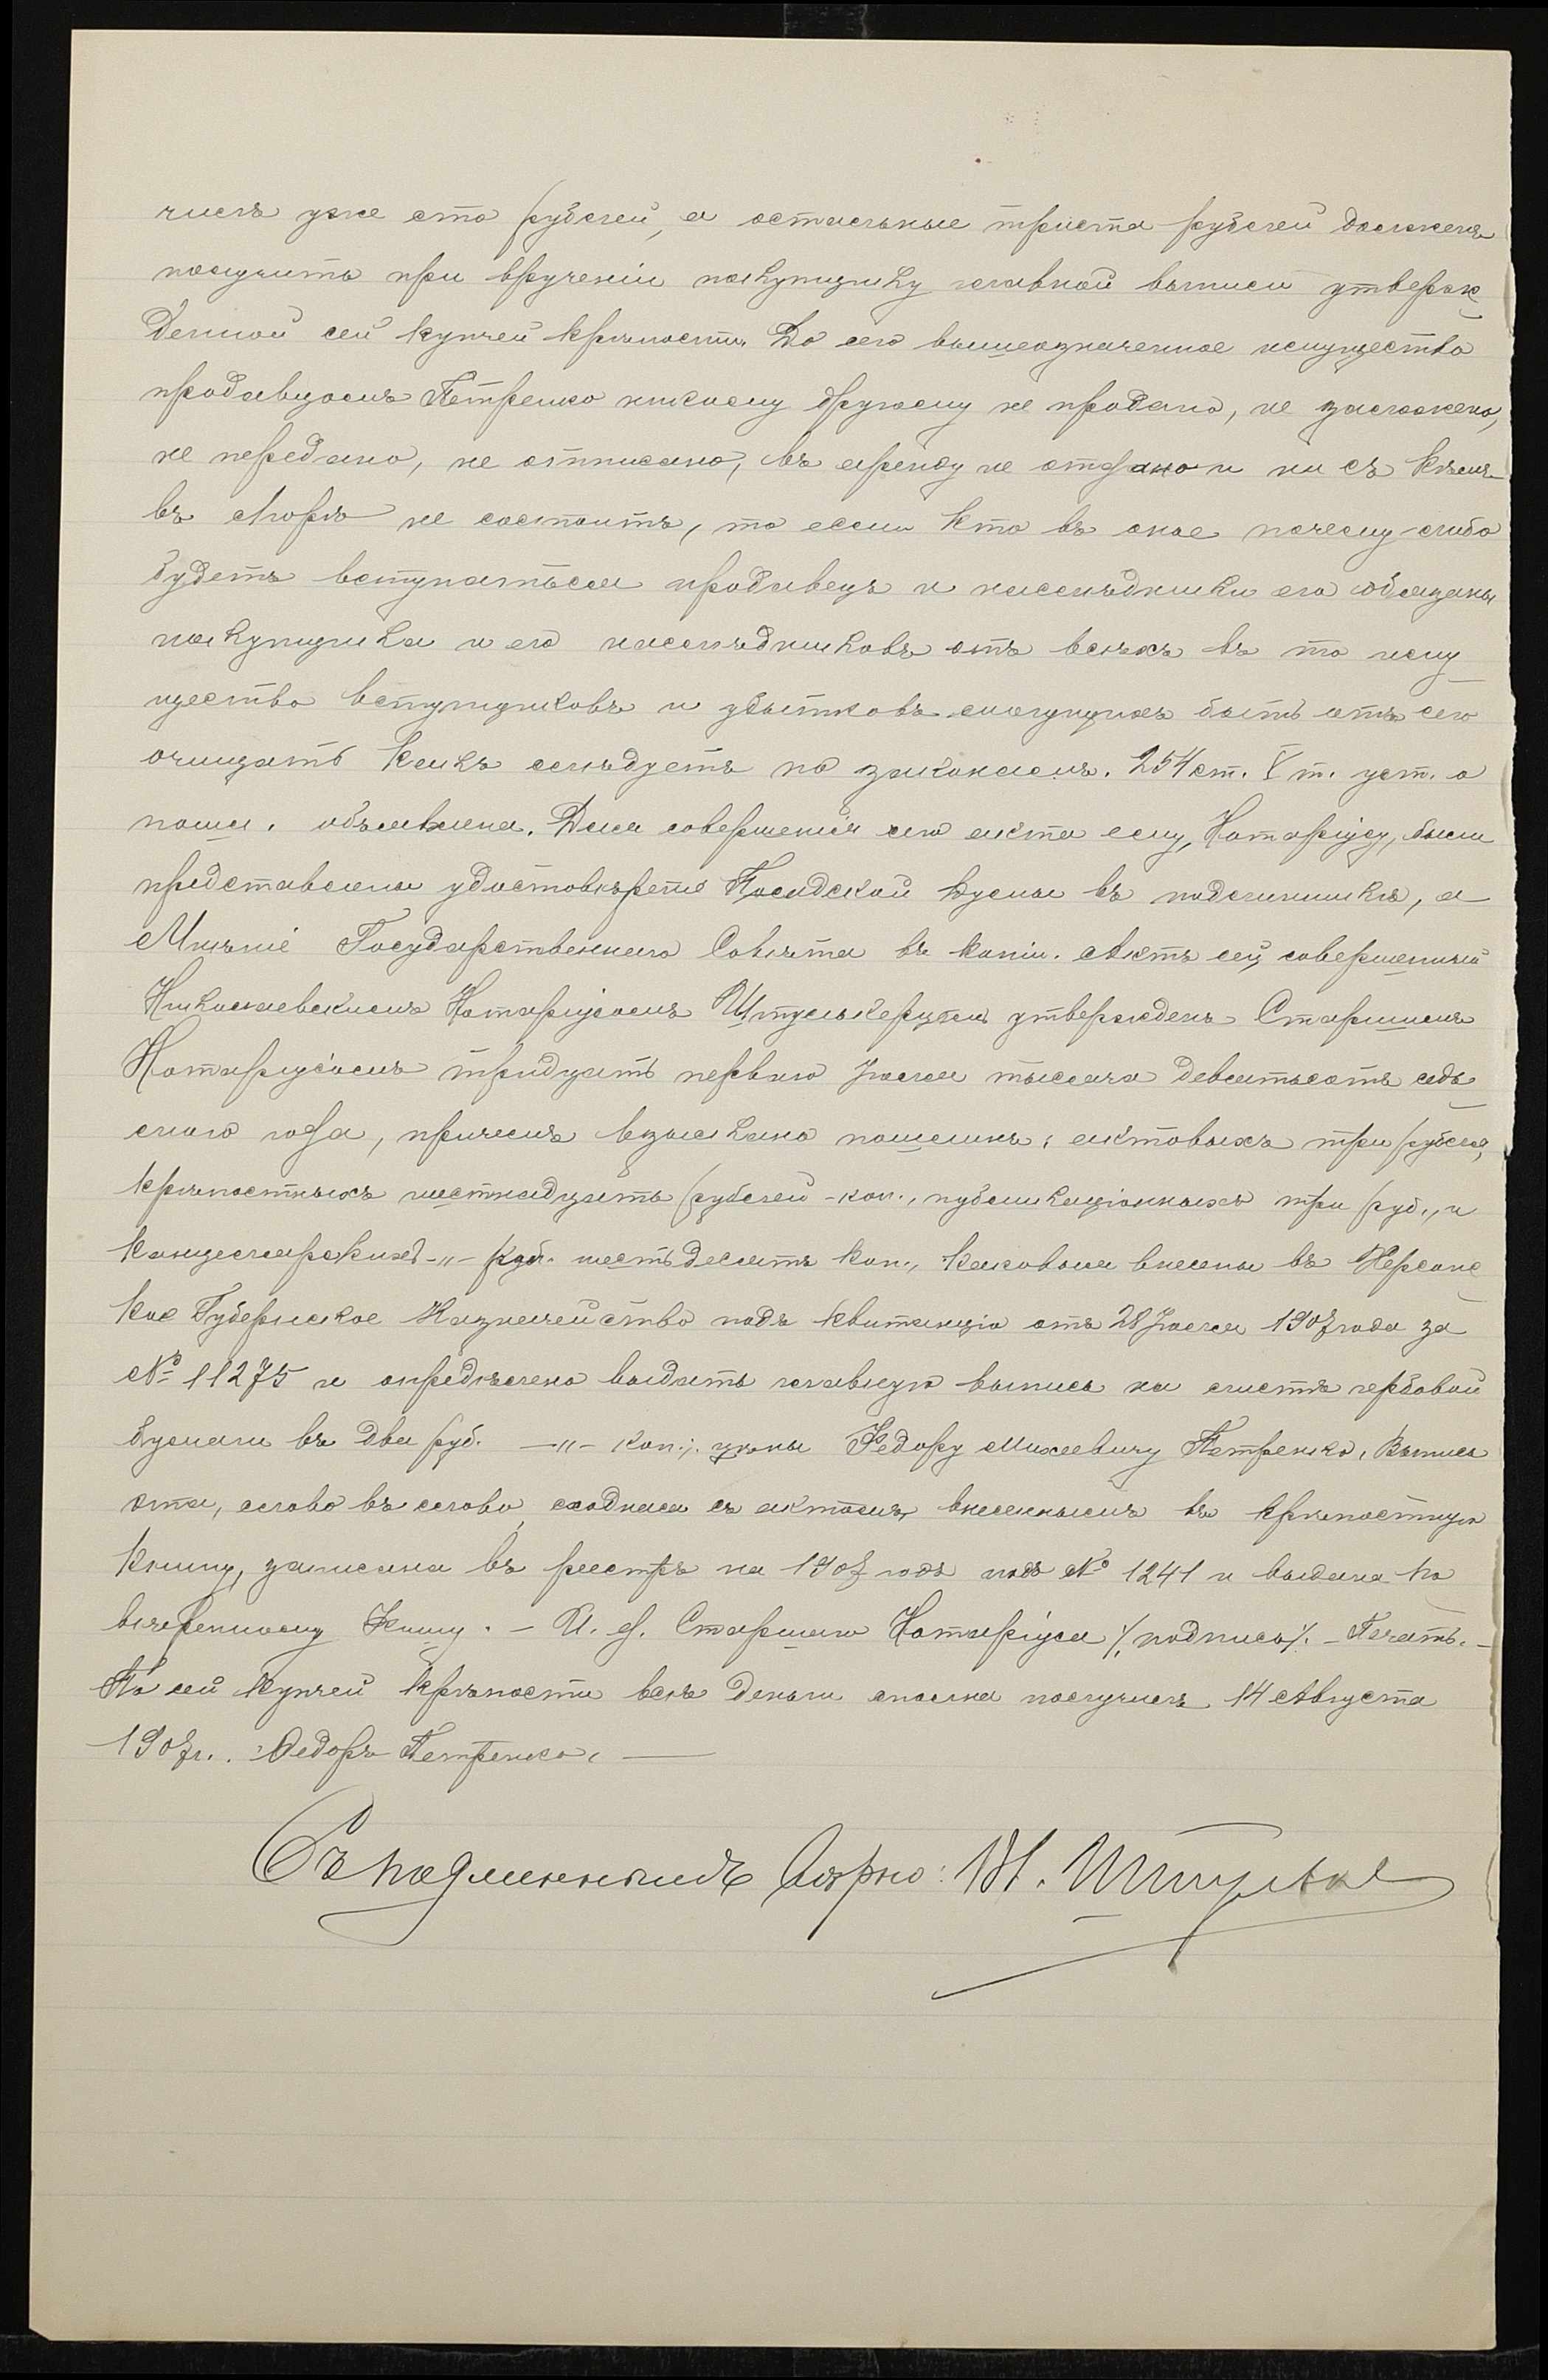 чилъ уже сто рублей, а остальные триста рублей долженъ
получить при врученіи покупщику главной выписи утверж
денной сей купчей крѣпости. До сего вышеозначенное имущество
продавцомъ Петренко никому другому не продано, не заложено,
не передано, не отписано, въ аренду не отдано и ни съ кѣмъ
въ спорѣ не состоитъ, то если кто въ оное почему-либо
будетъ вступаться продавецъ и наслѣдники его обязаны
покупщика и его наслѣдниковъ отъ всѣхъ въ то иму
щество вступщиковъ и убытковъ могущихъ быть отъ сего
очищать какъ слѣдуетъ по законамъ. 254 ст. V т. уст. о
пошл. объявлена. Для совершенія сего акта ему, Нотаріусу, были
представлены удостовѣреніе Посадской Думы въ подлинникѣ, а
Мнѣніе Государственнаго Совѣта въ копіи. Актъ сей, совершенный
Николаевскимъ Нотаріусомъ Штулькерцъ утвержденъ Старшимъ
Нотаріусомъ тридцать перваго Іюля тысяча девятьсотъ седь
мого года, причемъ взыскано пошлинъ: актовыхъ три рубля,
крѣпостныхъ шестнадцать рублей - коп., публикаціонныхъ три руб., и
канцелярскихъ -"- руб. шестьдесятъ коп., каковыя внесены въ Херсонс
кое Губернское Казначейство подъ квитанцію отъ 28 Іюля 1907 года за
№ 11275 и опредѣлено выдать главную выпись на листѣ гербовой
бумаги въ два руб. -"- коп. цѣны Федору Михеевичу Петренко. Выпись
эта, слово въ слово сходная съ актомъ, внесеннымъ въ крѣпостную
книгу, записана въ реестръ на 1907 годъ подъ № 1241 и выдана по
ввѣренному Кишу. - И. д. Старшаго Нотаріуса /подпись/. - Печать. -
По сей купчей крѣпости всѣ деньги сполна получилъ 14 Августа
1907 г. Федоръ Петренко. —
Съ подлиннымъ вѣрно: М. Штулька